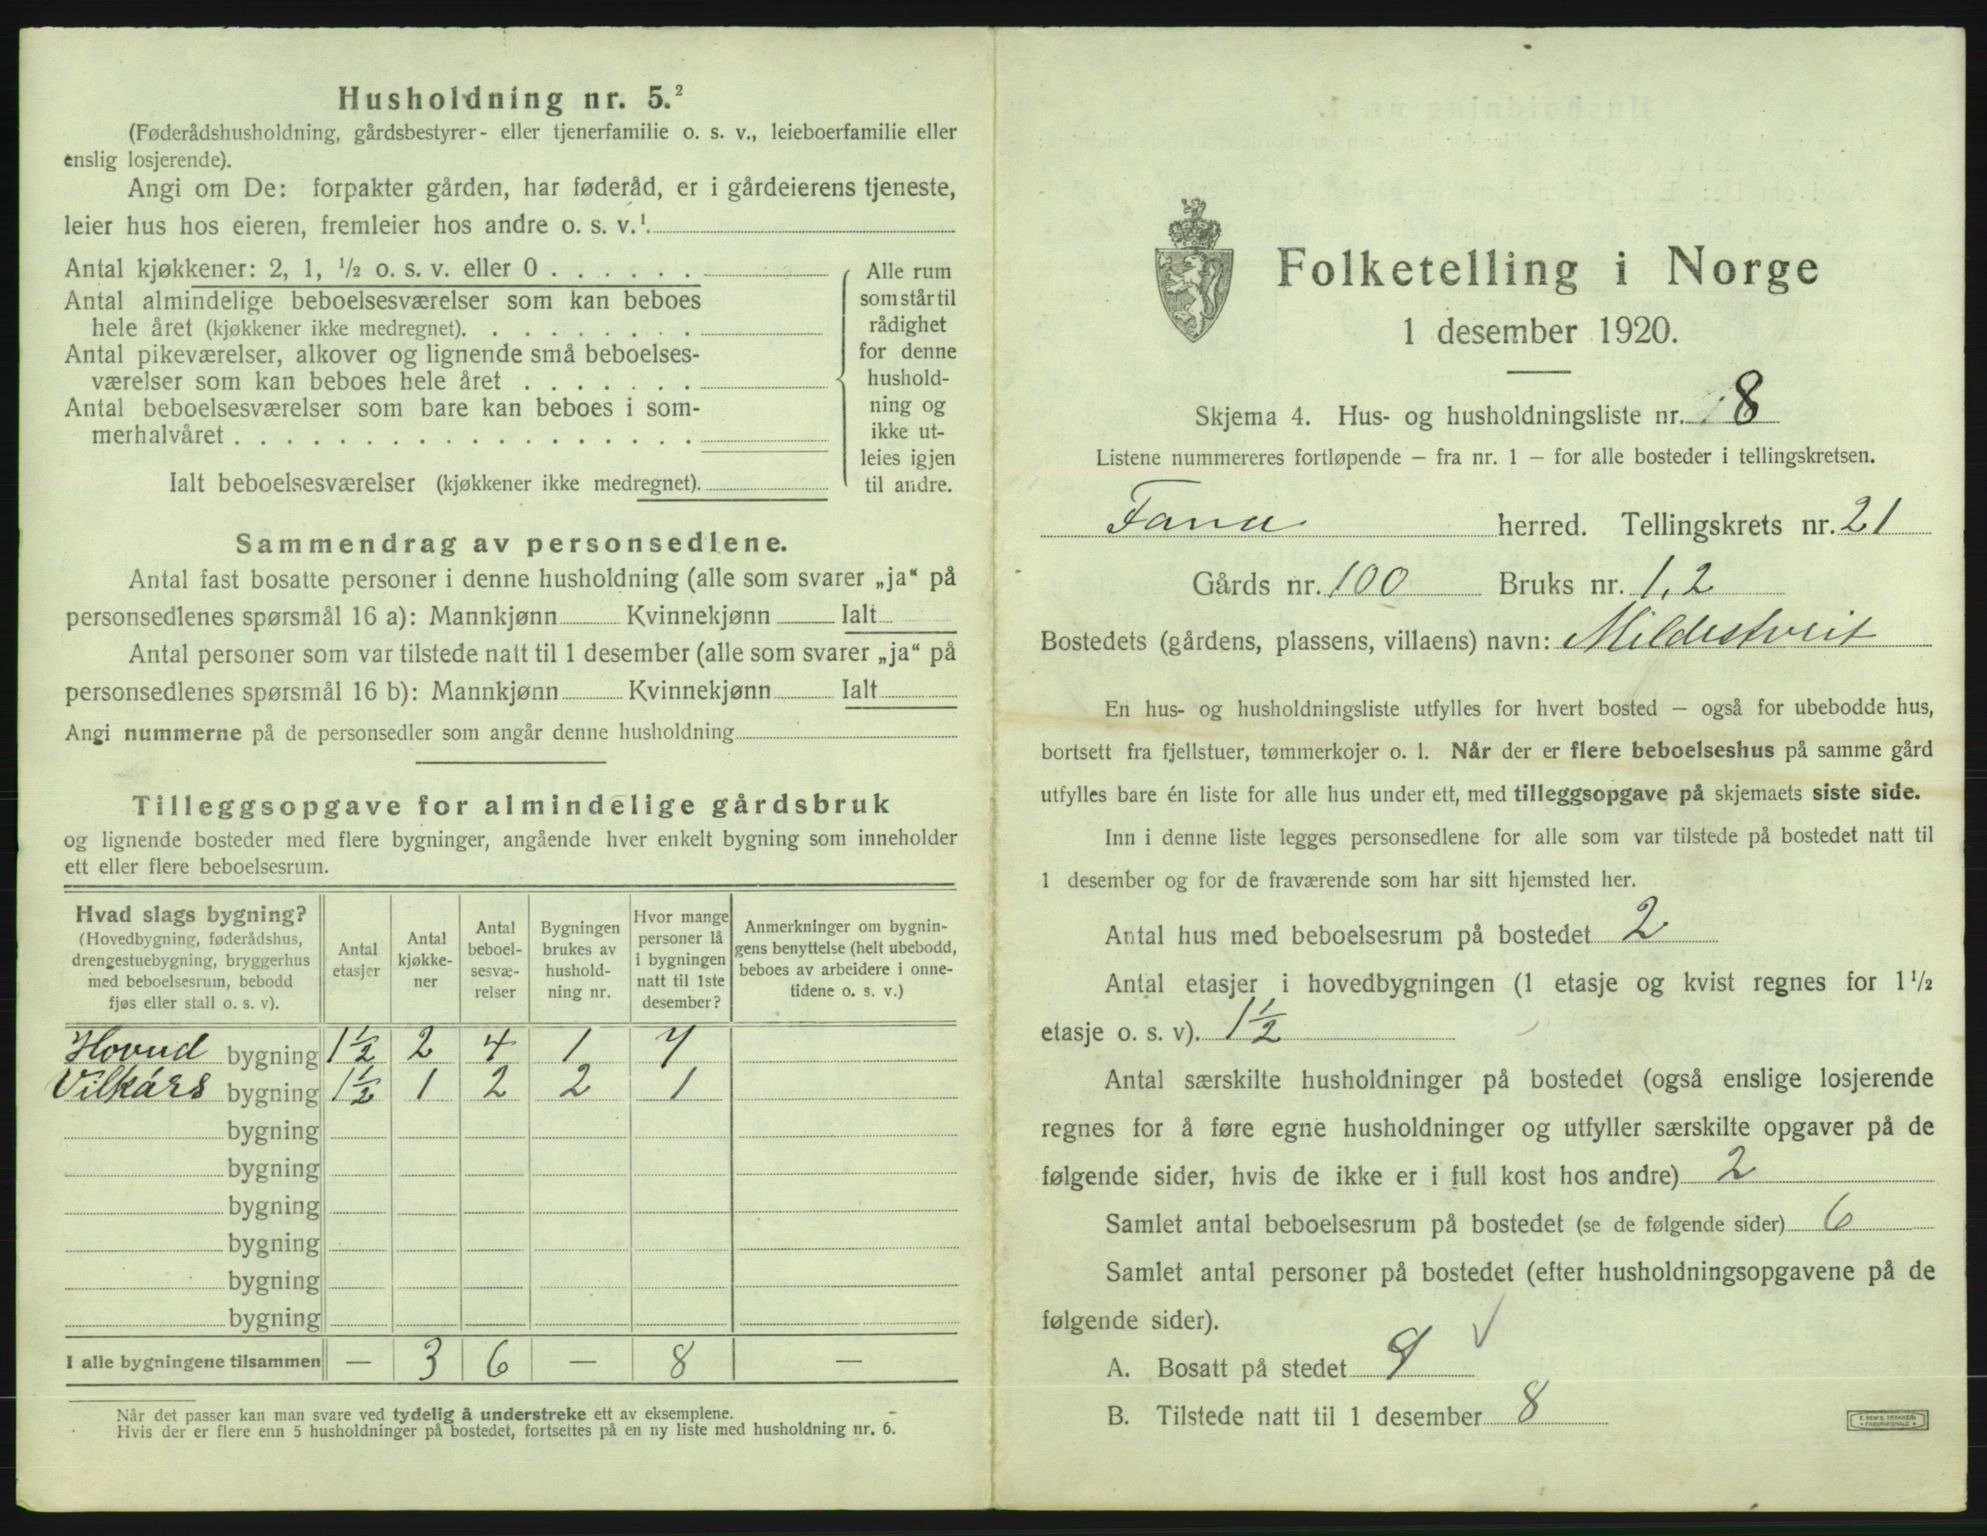 Husholdning nr. 5.²
(Føderådshusholdning, gårdsbestyrer- eller tjenerfamilie o. s. v., leieboerfamilie eller
enslig losjerende).
Angi om De: forpakter gården, har føderåd, er i gårdeierens tjeneste,
leier hus hos eieren, fremleier hos andre o. s. v.¹
Antal kjøkkener: 2, 1, ½ o. s. v. eller 0 . . . . . .
Antal almindelige beboelsesværelser som kan beboes
hele året (kjøkkener ikke medregnet). . . . . . . . .
Antal pikeværelser, alkover og lignende små beboelses-
værelser som kan beboes hele året . . . . . . .
Antal beboelsesværelser som bare kan beboes i som-
merhalvåret . . . . . . . . . . . . . . . . . .
Ialt beboelsesværelser (kjøkkener ikke medregnet).
Alle rum
som står til
rådighet
for denne
hushold-
ning og
ikke ut-
leies igjen
til andre.
Sammendrag av personsedlene.
Antal fast bosatte personer i denne husholdning (alle som svarer „ja“ på
personsedlenes spørsmål 16 a): Mannkjønn Kvinnekjønn Ialt
Antal personer som var tilstede natt til 1 desember (alle som svarer „ja“ på
personsedlenes spørsmål 16 b): Mannkjønn Kvinnekjønn Ialt
Angi nummerne på de personsedler som angår denne husholdning
Tilleggsopgave for almindelige gårdsbruk
og lignende bosteder med flere bygninger, angående hver enkelt bygning som inneholder
ett eller flere beboelsesrum.
Hvad slags bygning?
(Hovedbygning, føderådshus,
drengestuebygning, bryggerhus
med beboelsesrum, bebodd
fjøs eller stall o. s. v).
Antal
etasjer
Antal
kjøkke-
ner
Antal
beboel-
sesvæ-
relser
Bygningen
brukes av
hushold-
ning nr.
Hvor mange
personer lå
i bygningen
natt til 1ste
desember?
Anmerkninger om bygnin-
gens benyttelse (helt ubebodd,
beboes av arbeidere i onne-
tidene o. s. v.)
Hovud bygning 1½ 2 4 1 7
Vilkårs bygning 1½ 1 2 2 1
bygning
bygning
bygning
bygning
bygning
bygning
I alle bygningene tilsammen — 3 6 — 8 —
Når det passer kan man svare ved tydelig å understreke ett av eksemplene.
Hvis der er flere enn 5 husholdninger på bostedet, fortsettes på en ny liste med husholdning nr. 6.
Folketelling i Norge
1 desember 1920.
Skjema 4. Hus- og husholdningsliste nr. 8
Listene nummereres fortløpende – fra nr. 1 – for alle bosteder i tellingskretsen.
Fana herred. Tellingskrets nr. 21
Gårds nr. 100 Bruks nr. 1, 2
Bostedets (gårdens, plassens, villaens) navn: Mildestveit
En hus- og husholdningsliste utfylles for hvert bosted – også for ubebodde hus,
bortsett fra fjellstuer, tømmerkojer o. l. Når der er flere beboelseshus på samme gård
utfylles bare én liste for alle hus under ett, med tilleggsopgave på skjemaets siste side.
Inn i denne liste legges personsedlene for alle som var tilstede på bostedet natt til
1 desember og for de fraværende som har sitt hjemsted her.
Antal hus med beboelsesrum på bostedet 2
Antal etasjer i hovedbygningen (1 etasje og kvist regnes for 1½
etasje o. s. v). 1½
Antal særskilte husholdninger på bostedet (også enslige losjerende
regnes for å føre egne husholdninger og utfyller særskilte opgaver på de
følgende sider, hvis de ikke er i full kost hos andre) 2
Samlet antal beboelsesrum på bostedet (se de følgende sider) 6
Samlet antal personer på bostedet (efter husholdningsopgavene på de
følgende sider).
A. Bosatt på stedet 9
B. Tilstede natt til 1 desember 8